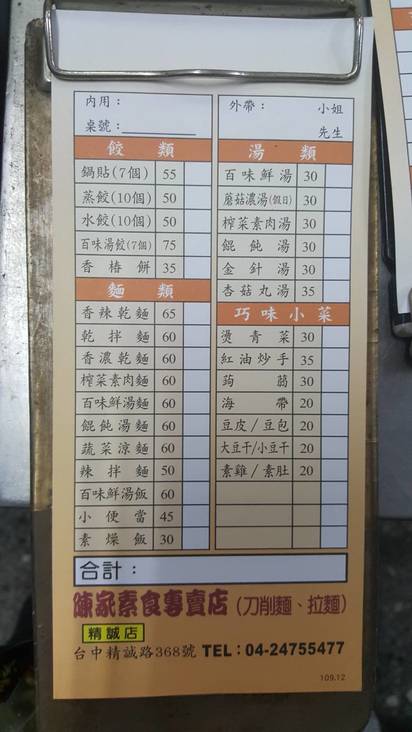 內用：
桌號：
餃 類
鍋貼(7個) 55
蒸餃(10個) 50
水餃(10個) 50
百味湯餃(7個) 75
香椿餅 35
麵 類
香辣乾麵 65
乾拌麵 60
香濃乾麵 60
榨菜素肉麵 60
百味鮮湯麵 60
餛飩湯麵 60
蔬菜涼麵 60
辣拌麵 50
百味鮮湯飯 60
小便當 45
素燥飯 30
外帶： 小姐
先生
湯 類
百味鮮湯 30
蘑菇濃湯(假日) 30
榨菜素肉湯 30
餛飩湯 30
金針湯 30
杏菇丸湯 35
巧味小菜
燙青菜 30
紅油炒手 35
蒟蒻 30
海帶 20
豆皮/豆包 20
大豆干/小豆干 20
素雞/素肚 20
合計：
陳家素食專賣店(刀削麵、拉麵)
精誠店
台中精誠路368號 TEL：04-24755477
109.12